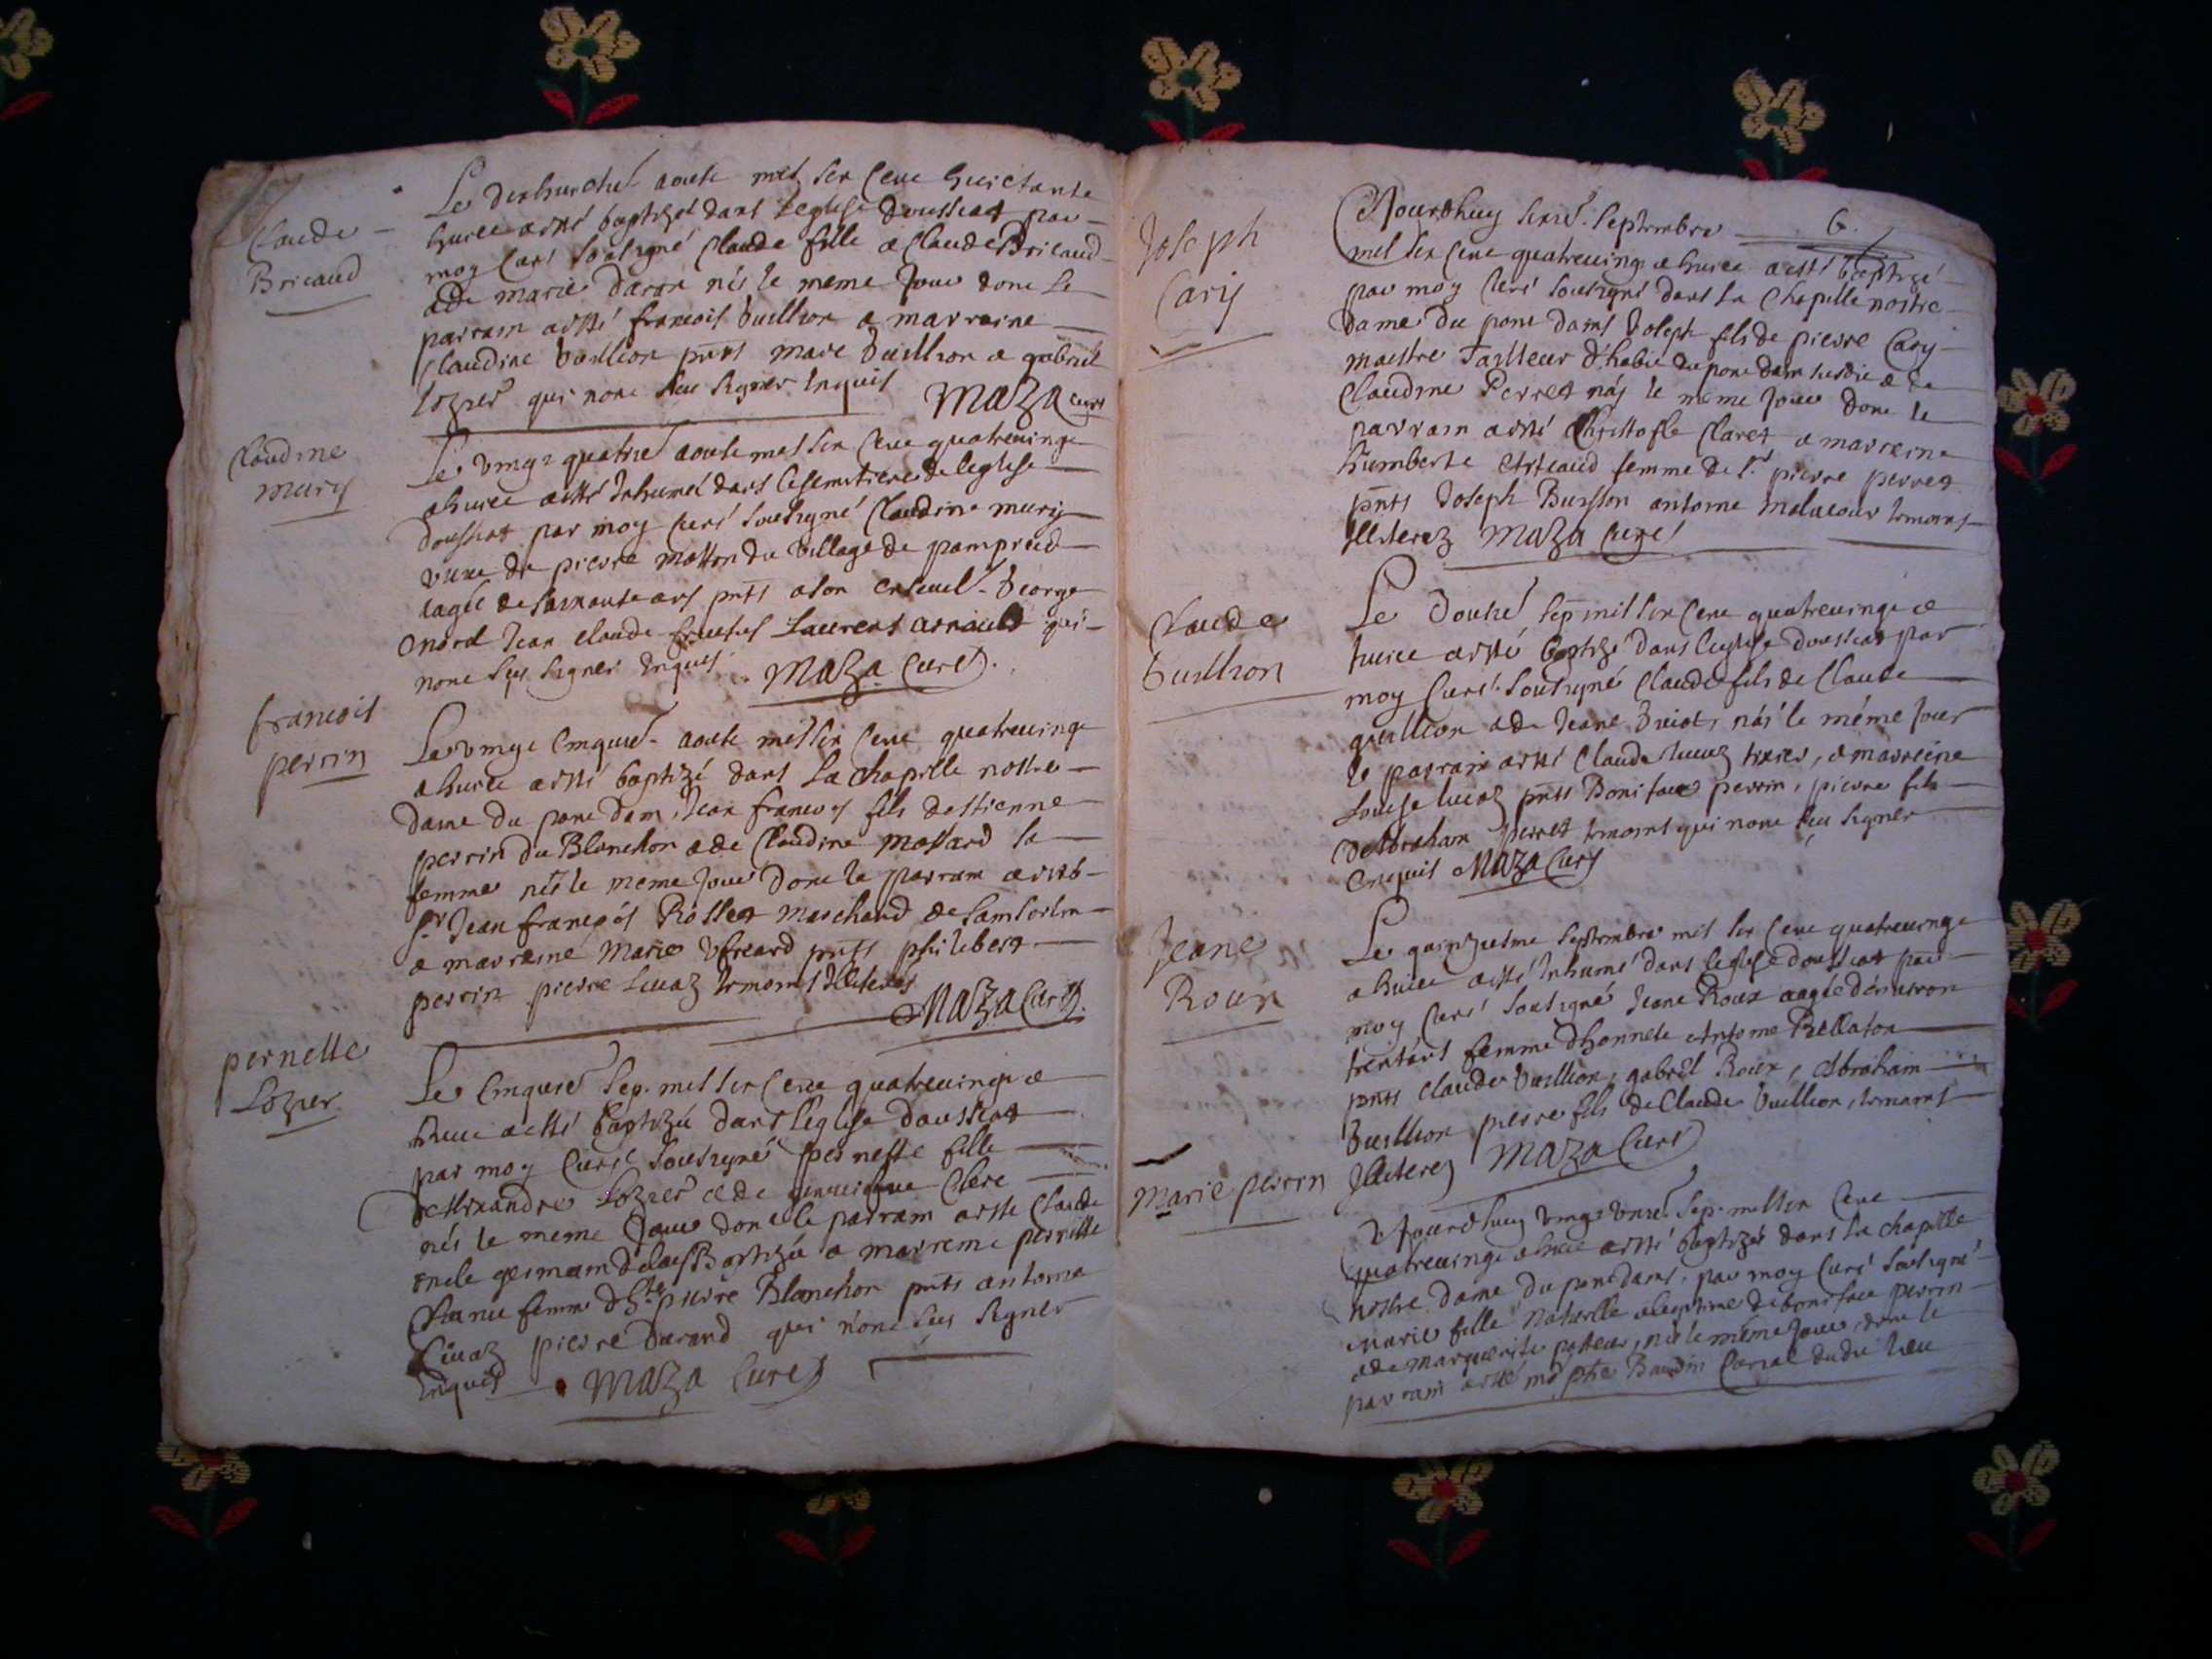 Claude
Bricaud
Le dixhuictie aoute mil six cent huictante
huict a esté baptizé dans leglise doussiat par
moy curé soubsigné Claude fille a Claude Bricaud
& de marie daran née le meme jour dont le
parrain a esté francois Vuillion & marraine
Claudine Vuillion pnts marc Vuillion & gabriel
lozier qui nont sceu signer enquis Maza curé
Claudine
mury
Le vingt quatrie aoute mil six cent quatreuingt
& huict a esté Inhumé dans le semetiere de leglise
doussiat par moy curé soubsigné Claudine mury
vueue de pierre du village de
aagée de soixante ans pnts a son George
nord Jean claude Laurens arnaud qui
nont sceu signer enquis Maza Curé
francois
perrin
Le vingt cinquie aoute mil six cent quatreuingt
& huict a esté baptizé dans la chapelle nostre
dame du pont dain, Jean francoys fils destienne
perrin du Blanchon & de Claudine massard sa
femme né le meme jour dont le parrain a esté
sr Jean françois Rosset marchand de
& marraine marie pnts philibert
perrin pierre Luiaz temoins Illiterés
Maza Curé
pernette
Lozier
Le cinquie sep. mil six cent quatreuingt &
huict a esté baptizée dans leglise doussiat
par moy Curé soubsigné pernette fille
dallexandre Lozier & de Clerc
née le meme jour dont le parrain a esté Claude
oncle germain de la Baptizée & marreine pernette
femme dhte pierre Blanchon pnts antoine
Luiaz pierre durand qui nont sceu signer
enquis Maza Curé
Joseph
Cary
Ajourdhuy sixie. septembre 6.
mil six cent quatreuingt & huict a esté baptizé
par moy Curé soubsigné dans la chapelle nostre
dame du pont dains Joseph fils de pierre Cary
maistre tailleur d'habit du pont dain susdit & de
Claudine Perret né le meme jour dont le
parrain a esté Christofle Claret & marreine
humberte Arteaud femme de Sr pierre perret
pnts Joseph Buisson antoine temoins
Illiterez Maza Curé
Claude
Vuillion
Le douzie sep mil six cent quatreuingt &
huict a esté baptizé dans leglise doussiat par
moy Curé soubsigné Claude fils de Claude
guillion & de Jeane né le méme jour
le parrain a esté Claude Luiaz tixier, & marreine
Louise Luiaz pnts Boniface perrin, pierre fils
de Abraham perret temoins qui nont sceu signer
enquis Maza Curé
Jeane
Roux
Le quinziesme septembre mil six cent quatreuingt
& huict a esté Inhumé dans leglise doussiat par
moy Curé soubsigné Jeane Roux aagée dénuiron
trentans femme dhonnete Antoine Rellaton
pnts claude Vuillion, gabriel Roux, Abraham
Vuillion pierre fils de Claude Vuillion, temoins
Illiterez Maza Curé
Marie perrin
Ajourdhuy vingt unie. sep. mil six cent
quatreuingt & huict a esté baptizée dans la chapelle
nostre dame du pont dains, par moy Curé soubsigné
marie fille naturelle & legitime de boniface perrin
& de marguerite née le méme jour, dont le
parrain a esté Baudin dudit lieu